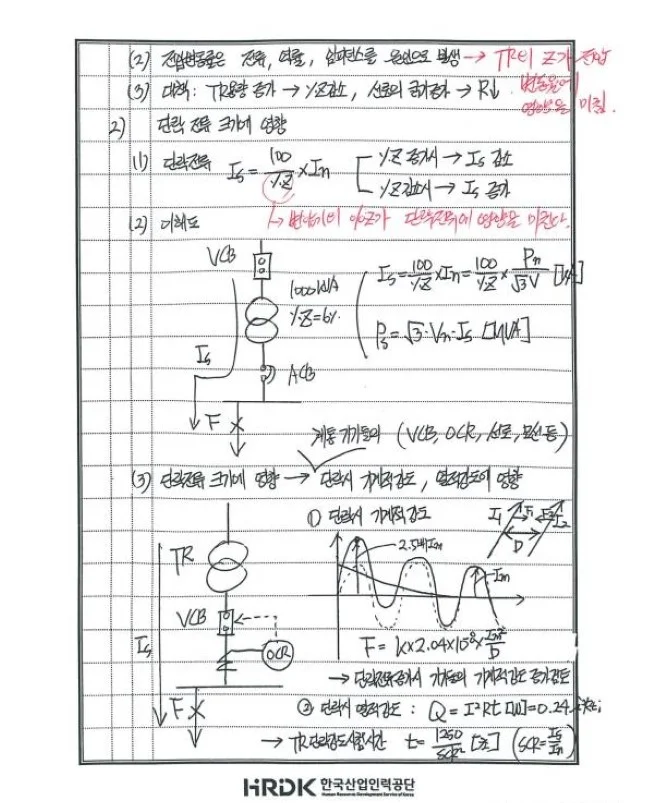 (2) 전압변동률은 전류, 역률, 임피던스를 원인으로 발생 → TR의 Z가 전압
변동율에
영향을 미침.
(3) 대책 : TR용량 증가 → %Z감소, 선로의 굵기증가 → R↓
2) 단락 전류 크기에 영향
(1) 단락전류 Is = 100/%Z × In
%Z 증가시 → Is 감소
%Z감소시 → Is 증가
↳ 변압기의 %Z가 단락전류에 영향을 미친다.
(2) 이해도
VCB
1000kVA
%Z=6%
Is = 100/%Z × In = 100/%Z × Pn/√3V [kA]
Ps = √3·Vn·Is [MVA]
Is
ACB
F
계통 기기들의 (VCB, OCR, 선로, 모선 등)
(3) 단락전류 크기에 영향 → 단락시 기계적강도, 열적강도에 영향
① 단락시 기계적강도
I1 F1 F2 I2
D
2.5배Im
Im
TR
VCB
OCR
Is
F = k×2.04×10⁻⁸× Im²/D
→ 단락전류증가시 기기들의 기계적강도 증가검토
F
② 단락시 열적강도 : Q = I²Rt [W] = 0.24
→ TR단락강도시험시간 t = 1250/SCR² [초] (SCR = Is/In)
HRDK 한국산업인력공단
Human Resources Development Service of Korea